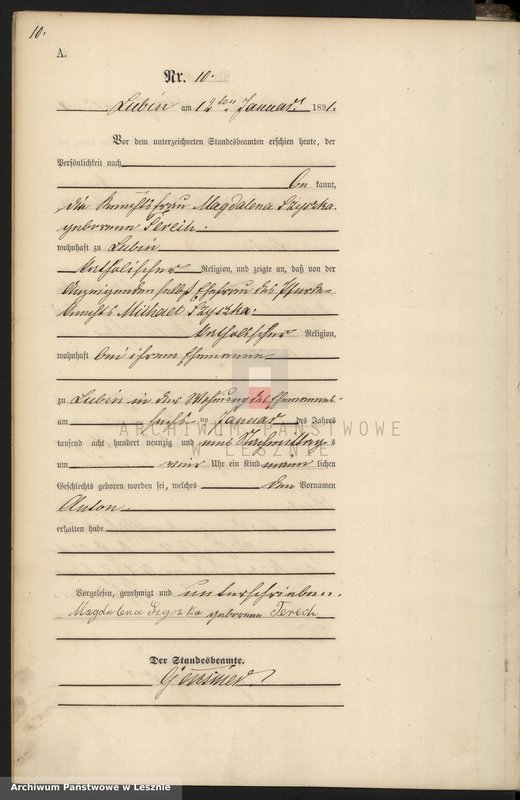 10.
A.
Nr. 10.
Lubin am 12ten Januar 1891.
Vor dem unterzeichneten Standesbeamten erschien heute, der
Persönlichkeit nach
be kannt,
die Knechtsfrau Magdalena Szyszka
geborene
wohnhaft zu Lubin
katholischer Religion, und zeigte an, daß von der
Anzeigenden selbst Ehefrau des Pferde-
knechts Michael Szyszka
katholischer Religion,
wohnhaft bei ihrem Ehemanne
zu Lubin in der Wohnung des Ehemannes
am Januar des Jahres
tausend acht hundert neunzig und eins Nachmittags
um vier Uhr ein Kind männ lichen
Geschlechts geboren worden sei, welches den Vornamen
Anton
erhalten habe
Vorgelesen, genehmigt und unterschrieben.
Magdalena Szyszka geborene Terech
Der Standesbeamte.
ARCHIWUM PAŃSTWOWE
W LESZNIE
Archiwum Państwowe w Lesznie